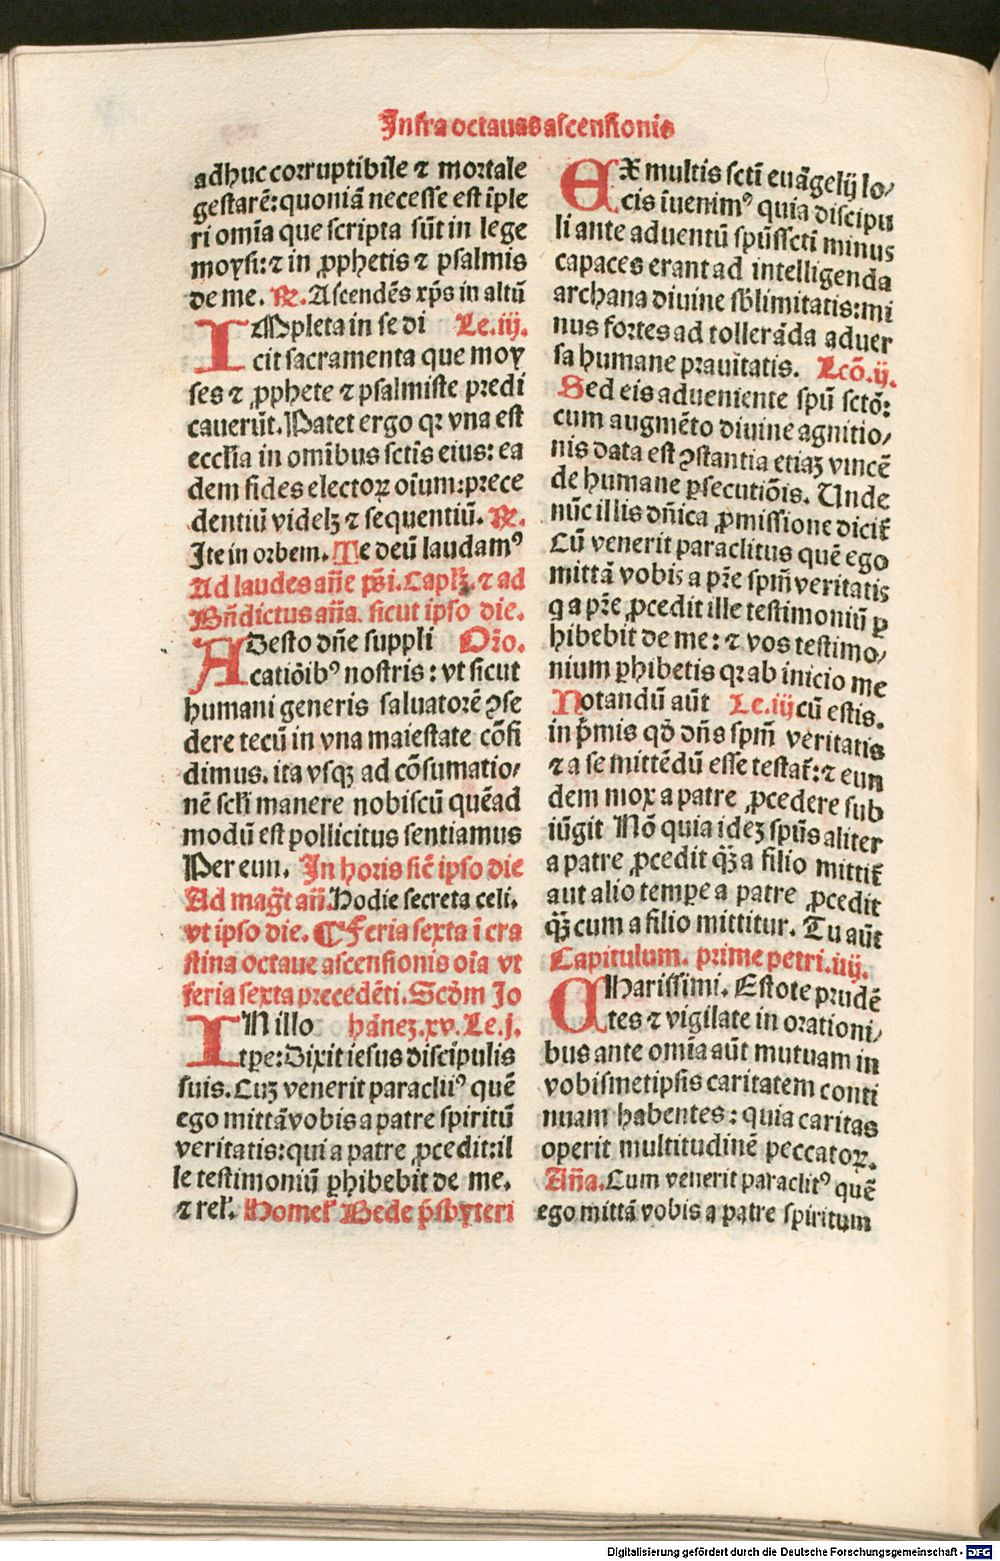 Infra octauas ascensionis
adhuc corruptibile ⁊ mortale
gestarē: quoniā necesse est īple
ri om̄ia que scripta sūt in lege
moysi: ⁊ in ꝓphetis ⁊ psalmis
de me. ℞. Ascendēs xp̄s in altū
IMpleta in se di Le.iij.
cit sacramenta que moy
ses ⁊ ꝓphete ⁊ psalmiste predi
cauerūt. Patet ergo qꝛ vna est
eccłia in omībus sctīs eius: ea
dem fides electoꝝ oīum: prece
dentiū videlꝫ ⁊ sequentiū. ℞.
Ite in orbem. Te deū laudamꝰ
Ad laudes an̄e ps̄i. Caplꝫ. ⁊ ad
Bn̄dictus an̄a. sicut ipso die.
ADesto dn̄e suppli Oꝛ̄o.
catiōibꝰ nostris: vt sicut
humani generis saluatorē ꝯse
dere tecū in vna maiestate cōfi
dimus. ita vsqꝫ ad cōsumatio/
nē scłi manere nobiscū quēad
modū est pollicitus sentiamus
Per eun. In horis sic̄ ipso die
Ad magt̄ an̄. Hodie secreta celi.
vt ipso die. ¶ Feria sexta ī cra
stina octaue ascensionis oīa vt
feria sexta precedēti. Scd̄m Jo
IN illo hānez.xv. Le.j.
tꝑe: Dixit iesus discipulis
suis. Cuꝫ venerit paraclitꝰ quē
ego mittā vobis a patre spiritū
veritatis: qui a patre ꝓcedit: il
le testimoniū ꝑhibebit de me.
⁊ reł. Homeł Bede p̄sbyteri
EX multis sctī euāgelij lo/
cis īuenimꝰ quia discipu
li ante aduentū spūssctī minus
capaces erant ad intelligenda
archana diuine sb̄limitatis: mi
nus fortes ad tollerāda aduer
sa humane prauitatis. Lcō.ij.
Sed eis adueniente spū sctō:
cum augmēto diuine agnitio/
nis data est ꝯstantia etiaꝫ vincē
de humane ꝑsecutiōis. Unde
nūc illis dn̄ica ꝓmissione dicit̄
Cū venerit paraclitus quē ego
mittā vobis a pr̄e spm̄ veritatis
q a pr̄e ꝓcedit ille testimoniū ꝑ
hibebit de me: ⁊ vos testimo/
nium ꝑhibetis qꝛ ab inicio me
Notandū aūt Le.iij cū estis.
in p̄mis qd̄ dn̄s spm̄ veritatis
⁊ a se mittēdū esse testat̄: ⁊ eun
dem mox a patre ꝓcedere sub
iūgit Nō quia idez spūs aliter
a patre ꝓcedit qꝫ̄ a filio mittit̄
aut alio tempe a patre ꝓcedit
qꝫ̄ cum a filio mittitur. Tu aūt
Capitulum. prime petri.iiij.
CHarissimi. Estote prudē
tes ⁊ vigilate in orationi/
bus ante omīa aūt mutuam in
vobismetipsis caritatem conti
nuam habentes: quia caritas
operit multitudinē peccatoꝝ.
An̄a. Cum venerit paraclitꝰ quē
ego mittā vobis a patre spiritum
Digitalisierung gefördert durch die Deutsche Forschungsgemeinschaft - DFG